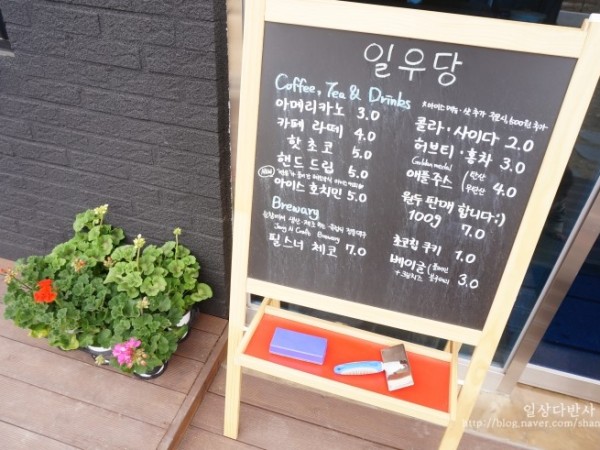 일우당
Coffee, Tea & Drinks
아메리카노 3.0
카페 라떼 4.0
핫 초코 5.0
핸드 드립 5.0
NEW
아이스 호치민 5.0
Brewary
Brewary
필스너 체코 7.0
콜라·사이다 2.0
허브티·홍차 3.0
애플주스 4.0
원두 판매 합니다;)
100g 7.0
초코칩 쿠키 1.0
베이글 (플레인
+크림치즈 블루베리 3.0
일상다반사
http://blog.naver.com/shan